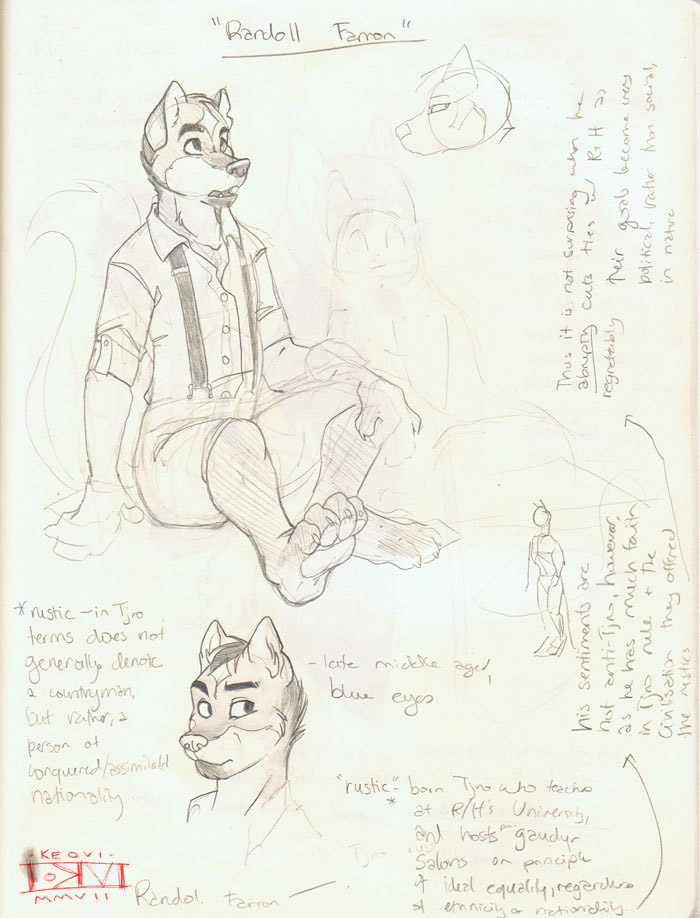 "Randoll Farron"
Thus it is not surprising when he
abruptly cuts ties w/ R+H as
regrettably their goals become very
political, rather than social,
in nature
his sentiments are
not anti-Tjro, however,
as he has much faith
in Tjro rule + the
Civilisation they offered
the rustics
*rustic - in Tjro
terms does not
generally denote
a countryman,
but rather, a
person of
conquered/assimilated
nationality
- late middle aged,
blue eyes
"rustic"- born Tjro who teaches
*
at R/H's University,
and hosts gaudy
Salons on principle
of ideal equality, regardless
of ethnicity or nationality.
Tjro
KEOVI
MMVII
Randol. Farron